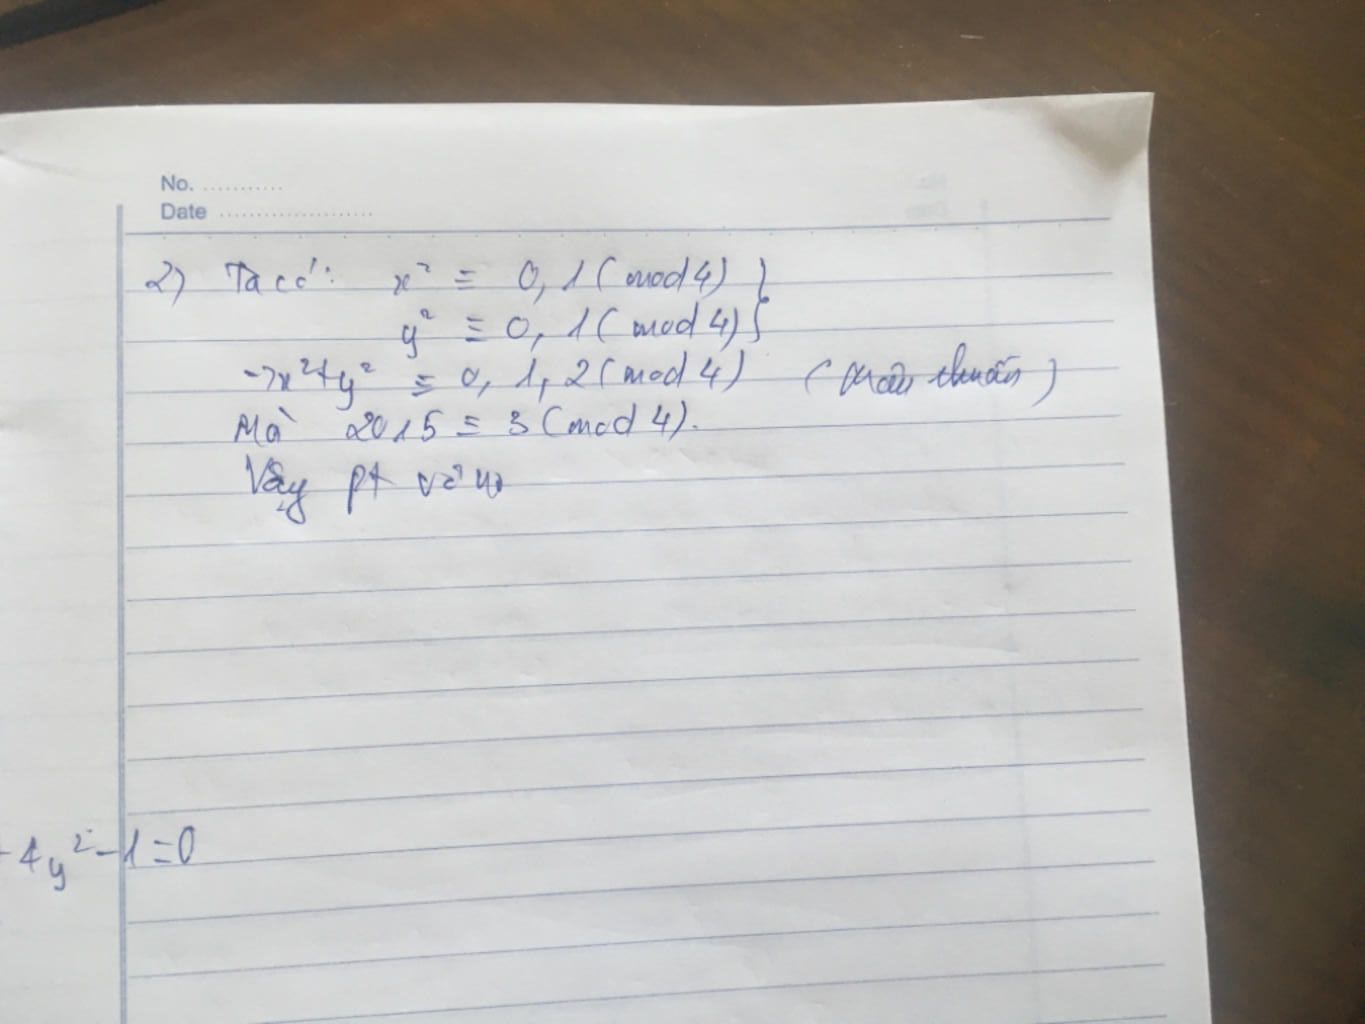 No. ...........
Date ......................
2) Ta có: x² ≡ 0, 1 (mod 4) }
y² ≡ 0, 1 (mod 4) }
→ x² + y² ≡ 0, 1, 2 (mod 4) (mâu thuẫn)
Mà 2015 ≡ 3 (mod 4).
Vậy pt vô no
4y² - 1 = 0